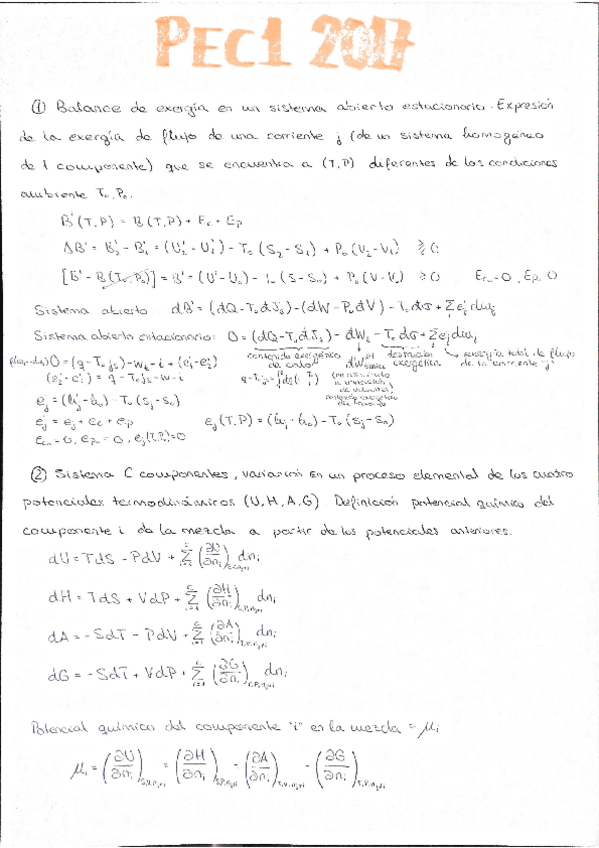 PEC1 2017
① Balance de exergía en un sistema abierto estacionario. Expresión
de la exergía de flujo de una corriente j (de un sistema homogéneo
de 1 componente) que se encuentra a (T,P) diferentes de las condiciones
ambiente T₀, P₀.
B'(T,P) = B(T,P) + Ec + Ep
ΔB' = B'₂ - B'₁ = (U'₂ - U'₁) - T₀(S₂-S₁) + P₀(V₂-V₁)
[B' - B(T₀,P₀)] = B' = (U'-U₀) - T₀(S-S₀) + P₀(V-V₀) ≥0
Sistema abierto: dB' = (dQ-T₀dJs) - (dW-P₀dV) - T₀dσ + Σe'jdmj
Sistema abierto estacionario: 0 = (dQ-T₀dJs) - dWt - T₀dσ + Σe'jdmj
contenido exergético de calor
destrucción exergética
exergía total de flujo de la corriente "j"
0 = (q-T₀js) - wt - i + (e'₁-e'₂)
e'j = (h'j-h₀) - T₀(sj-s₀)
e'j = ej + ec + ep
ej(T,P) = (hj-h₀) - T₀(sj-s₀)
② Sistema C componentes, variación en un proceso elemental de los cuatro
potenciales termodinámicos (U,H,A,G). Definición potencial químico del
componente i de la mezcla a partir de los potenciales anteriores.
dU = TdS - PdV + Σ(∂U/∂ni) dni
dH = TdS + VdP + Σ(∂H/∂ni)S,P,nj≠i dni
dA = -SdT - PdV + Σ(∂A/∂ni)T,V,nj≠i dni
dG = -SdT + VdP + Σ(∂G/∂ni)T,P,nj≠i dni
Potencial químico del componente "i" en la mezcla = μi
μi = (∂U/∂ni)S,V,nj≠i = (∂H/∂ni)S,P,nj≠i = (∂A/∂ni)T,V,nj≠i = (∂G/∂ni)T,P,nj≠i